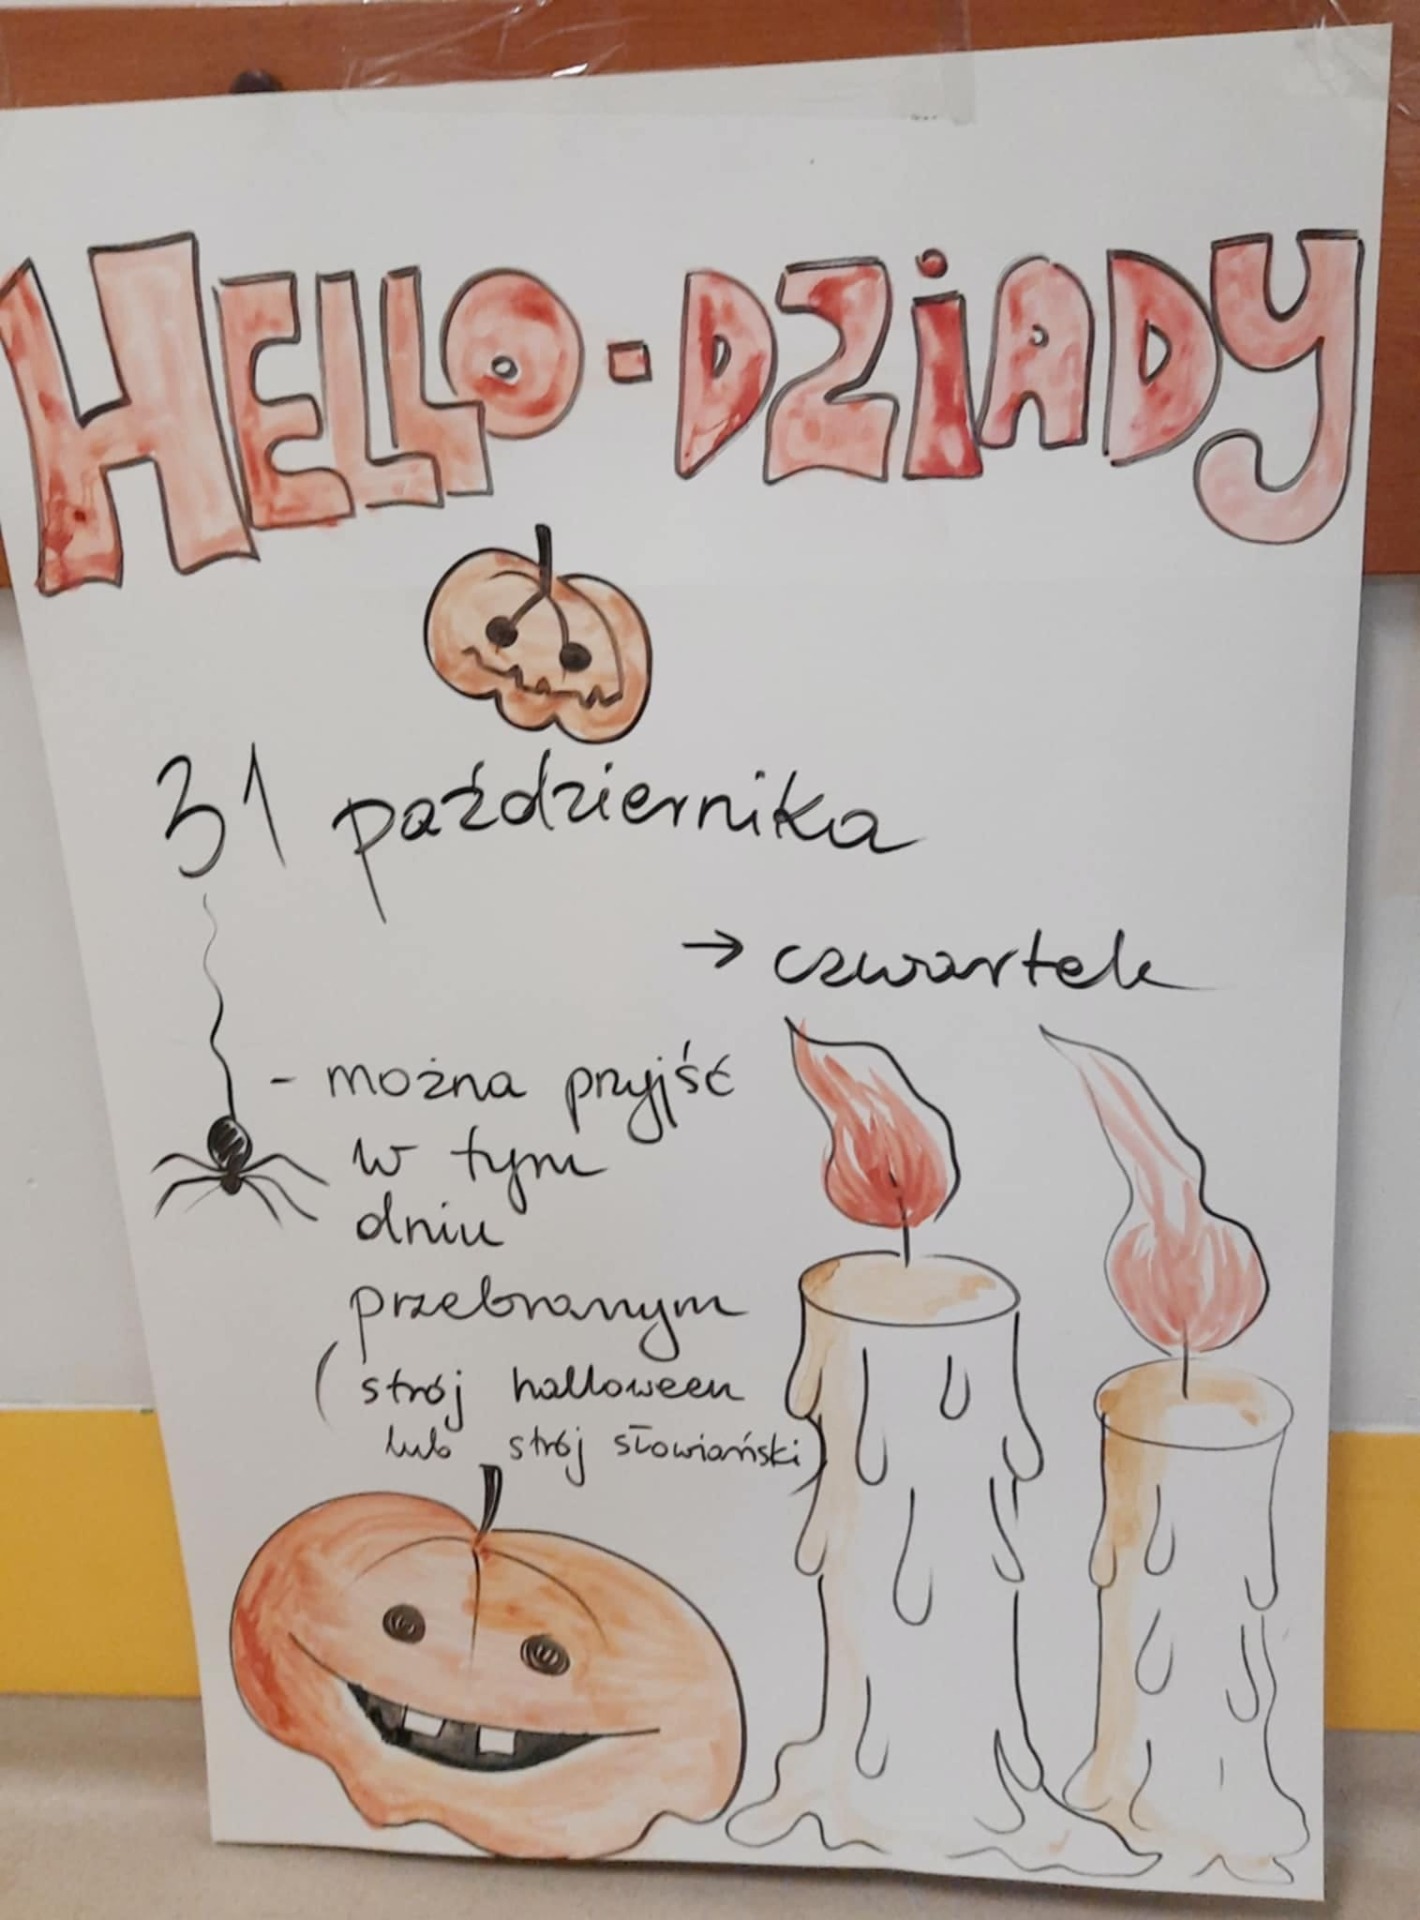 HELLO-DZiADY
31 października
→ czwartek
- można przyjść
w tym
dniu
przebranym
(strój halloween
lub strój słowiański)